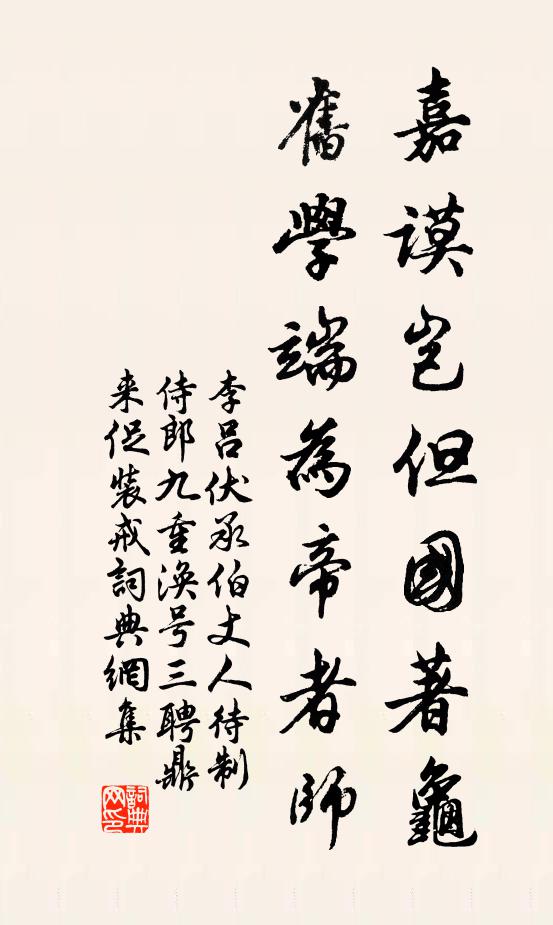 嘉謨岂但國著龜
舊學端為帝者師
李呂伏承伯丈人待制
侍郎九重渙号三聘鼎
来促裝戒詞典網集
詞典网印